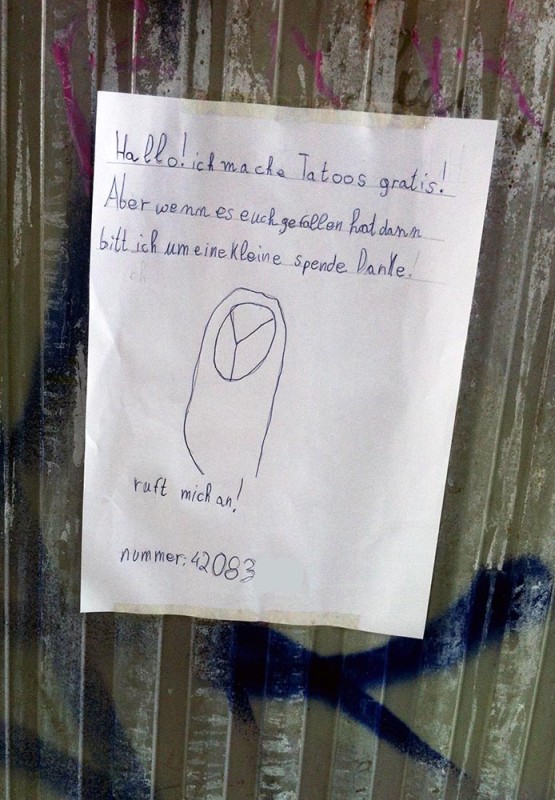 Hallo! ich mache Tatoos gratis!
Aber wenn es euch gefallen hat dann
bitt ich um eine kleine spende Danke!
ruft mich an!
nummer: 42083